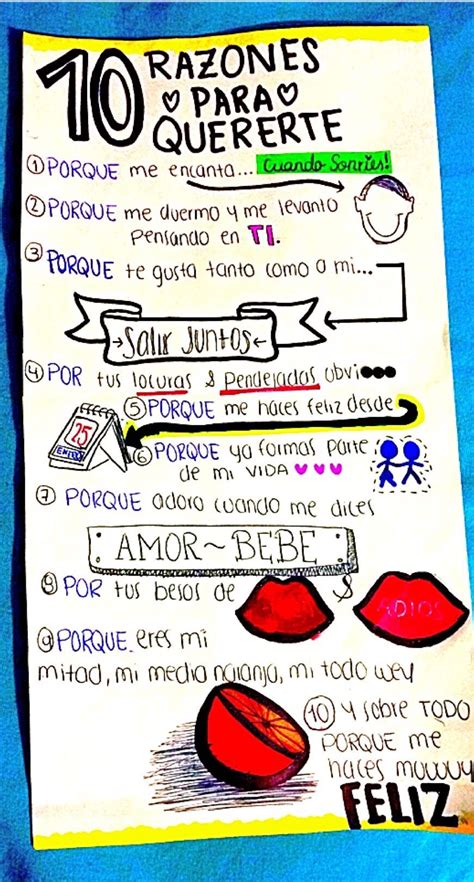 10 RAZONES
PARA
QUERERTE
① PORQUE me encanta... Cuando Sonries!
② PORQUE me duermo y me levanto
Pensando en TI.
③ PORQUE te gusta tanto como a mi...
Salir Juntos
④ POR tus locuras & pendejadas obvi...
⑤ PORQUE me haces feliz desde
25
ENERO
⑥ PORQUE ya formas parte
de mi VIDA
⑦ PORQUE adoro cuando me dices
AMOR~BEBE
⑧ POR tus besos de &
ADIOS
⑨ PORQUE eres mi
mitad, mi media naranja, mi todo wey
⑩ Y sobre TODO
PORQUE me
haces muuuuy
FELIZ